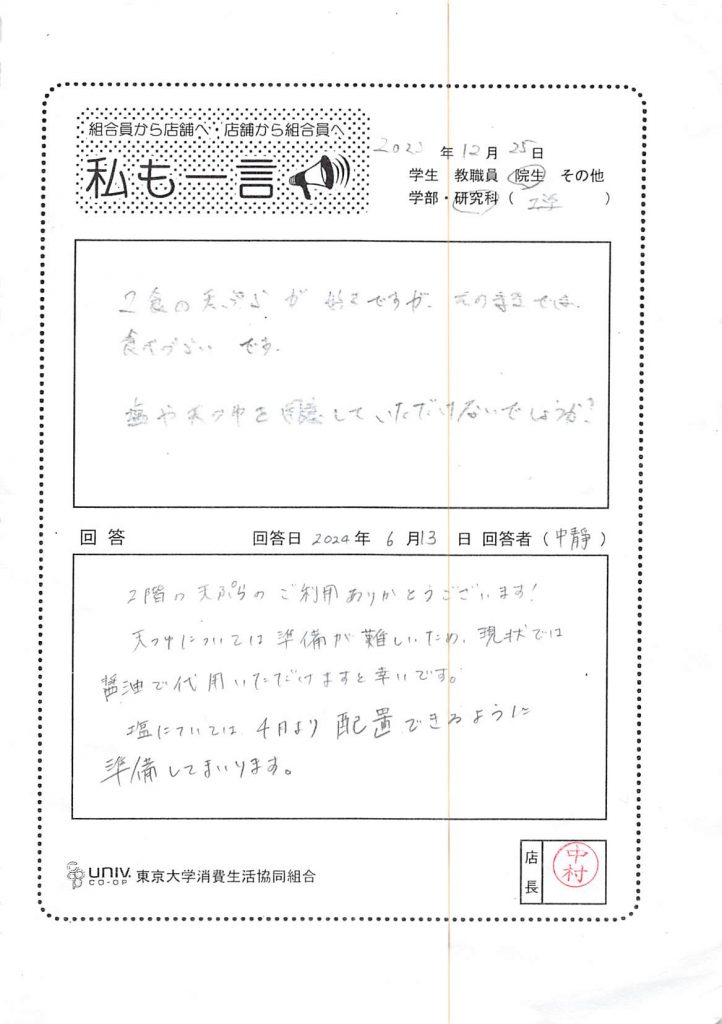 組合員から店舗へ・店舗から組合員へ
私も一言
2023年12月25日
学生 教職員 院生 その他
学部・研究科(工学)
2食の天ぷらが好きですが、そのままでは
食べづらいです。
塩や天つゆを用意していただけないでしょうか?
回答 回答日 2024年 6月13日 回答者(中靜)
2階の天ぷらのご利用ありがとうございます!
天つゆについては準備が難しいため、現状では
醤油で代用いただけますと幸いです。
塩については4月より配置できるように
準備してまいります。
UNIV.
CO-OP
東京大学消費生活協同組合
店長
中村